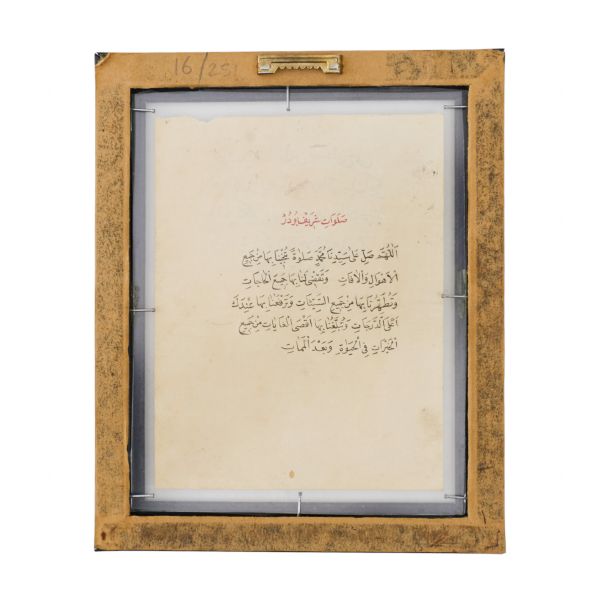 16/251
صلوات شريف بودر
اللهم صل على سيدنا محمد صلوة تنجينا بها من جميع
الاهوال والافات وتقضى لنا بها جميع الحاجات
وتطهرنا بها من جميع السيئات وترفعنا بها عندك
اعلى الدرجات وتبلغنا بها اقصى الغايات من جميع
الخيرات في الحيوة وبعد الممات